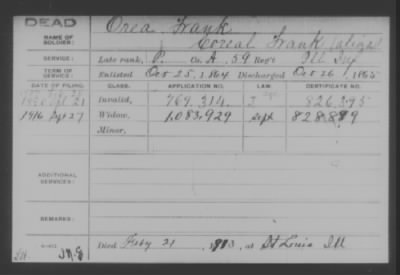 DEAD
NAME OF SOLDIER:
Orea Frank
Coreal Frank (alias)
SERVICE:
Late rank, P. Co. A, 59 Reg't Ill Inf
TERM OF SERVICE:
Enlisted Oct 25, 1864 Discharged Oct 26, 1865
DATE OF FILING. CLASS. APPLICATION NO. LAW. CERTIFICATE NO.
Invalid, 769.314
1916 Sept 27 Widow, 1,083,929 Sept 828.889
Minor,
ADDITIONAL SERVICES:
REMARKS:
Died Feby 21, at St Louis Ill